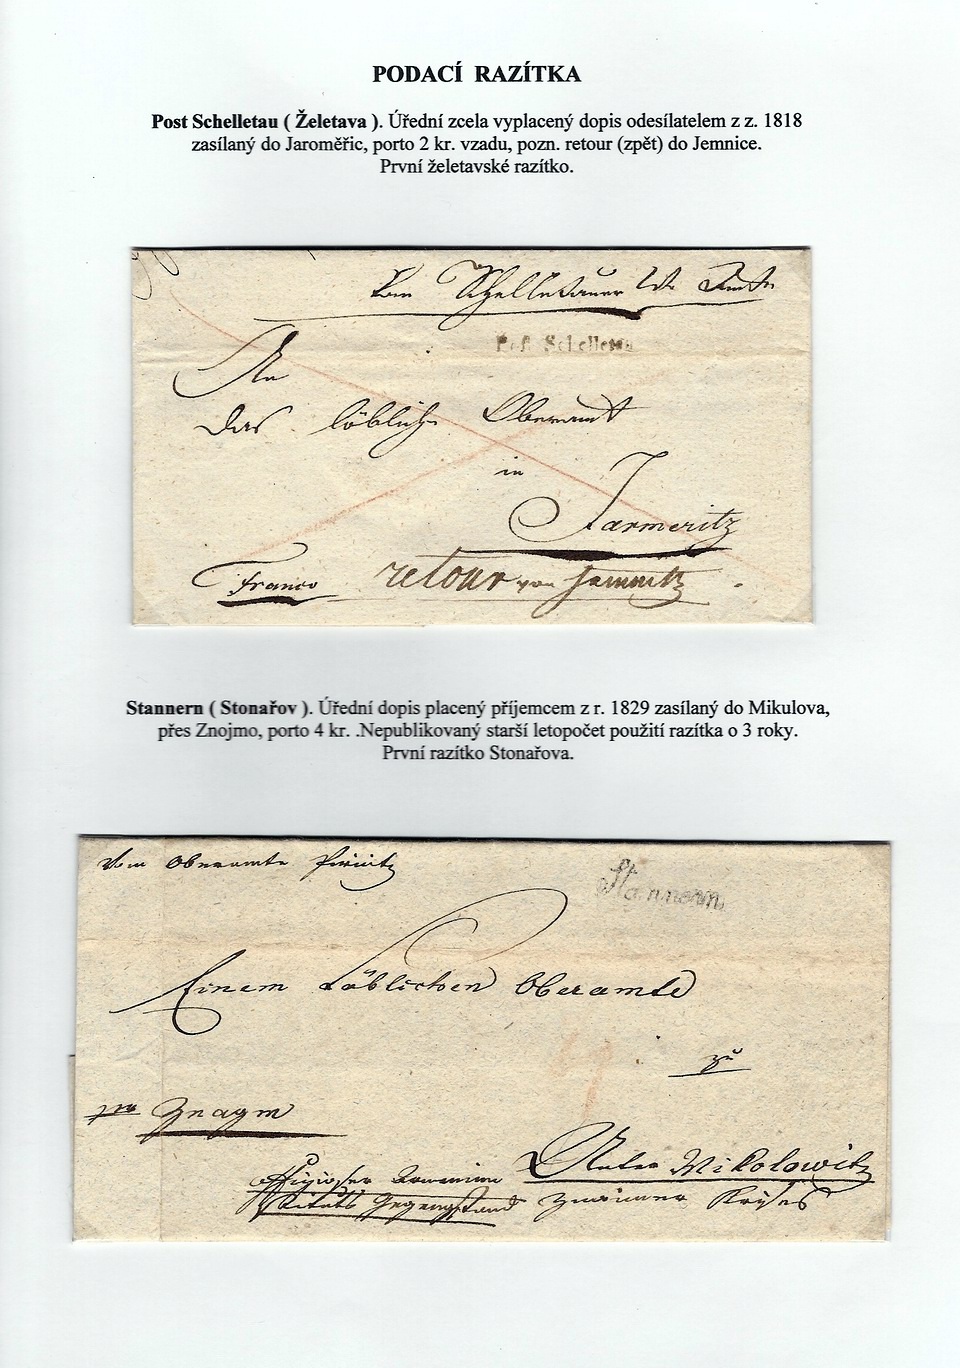 PODACÍ RAZÍTKA
Post Schelletau ( Želetava ). Úřední zcela vyplacený dopis odesílatelem z z. 1818
zasílaný do Jaroměřic, porto 2 kr. vzadu, pozn. retour (zpět) do Jemnice.
První želetavské razítko.
Vom Schelletauer Amte
Post Schelletau
An
das löbliche Oberamt
in
Jarmeritz
Franco retour von Jamnitz
Stannern ( Stonařov ). Úřední dopis placený příjemcem z r. 1829 zasílaný do Mikulova,
přes Znojmo, porto 4 kr. .Nepublikovaný starší letopočet použití razítka o 3 roky.
První razítko Stonařova.
Vom Oberamte Pirnitz
Stannern
Einem Löblichen Oberamte
zu
pr Znaym
Unter Mikolowitz
Znaimer Kreises